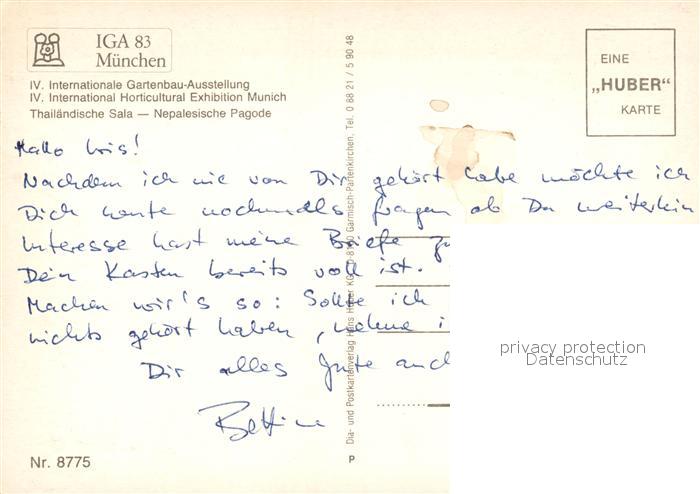 IGA 83
München
IV. Internationale Gartenbau-Ausstellung
IV. International Horticultural Exhibition Munich
Thailändische Sala — Nepalesische Pagode
EINE
„HUBER“
KARTE
Hallo Iris!
Nachdem ich nie von Dir gehört habe möchte ich
Dich heute nochmals fragen ob Du weiterhin
Interesse hast meine Briefe
Dein Kasten bereits voll ist.
Machen wir's so: Sollte ich
nichts gehört haben, nehme
Dir alles Gute auch
Bettina
Dia- und Postkartenverlag Hans Huber KG, Garmisch-Partenkirchen, Tel. 0 88 21 / 5 90 48
privacy protection
Datenschutz
Nr. 8775
P